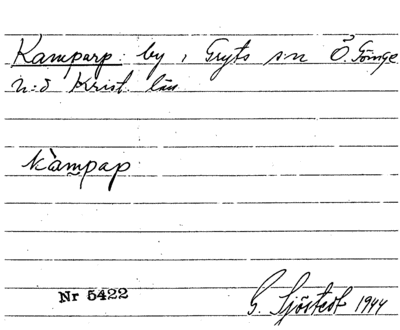 Kamparp: by i Gryts s:n Ö. Göinge
h:d Krist. län
kàmpap
Nr 5422
G. Sjöstedt 1944